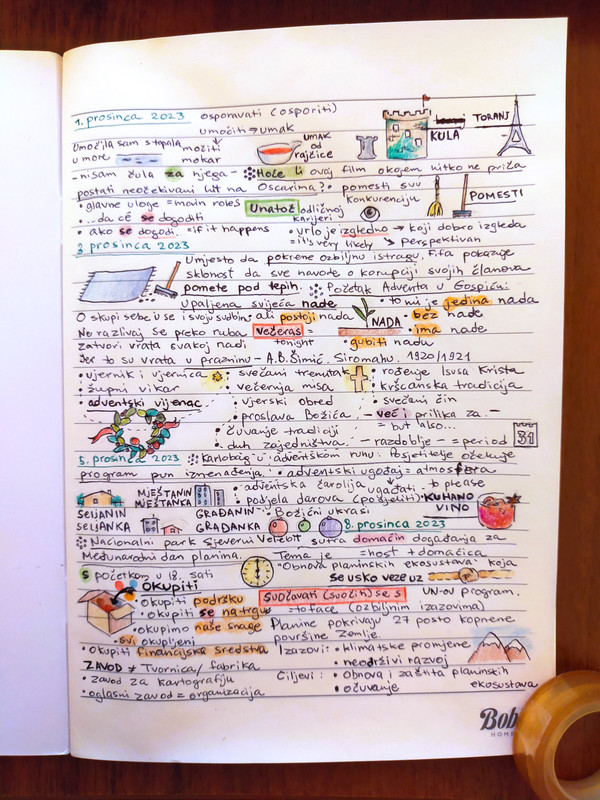 1. prosinca 2023 osporavati (osporiti)
umočiti → umak
TORANJ
KULA
Umočila sam stopala močiti
u more mokar
UMAK OD rajčice
- nisam čula za njega - Hoće li ovaj film okojem nitko ne priča
postati neočekivani hit na Oscarima? pomesti svu
konkurenciju
POMESTI
• glavne uloge = main roles Unatoč odličnoj
karijeri
• ...da će se dogoditi
• vrlo je izgledno → koji dobro izgleda
• ako se dogodi. = if it happens
= it's very likely ↘ perspektivan
2. prosinca 2023
Umjesto da pokrene ozbiljnu istragu, Fifa pokazuje
sklonost da sve navode o korupciji svojih članova
pomete pod tepih. Početak Adventa u Gospiću:
Upaljena svijeća nade • to mi je jedina nada
O skupi sebe u se i svoju sudbinu ali postoji nada
NADA • bez nade
Ne razlivaj se preko ruba večeras = • ima nade
zatvori vrata svakoj nadi tonight • gubiti nadu
Jer to su vrata u prazninu - A.B. Šimić, Siromahu. 1920/1921
• vjernik i vjernica • svečani trenutak • rođenje Isusa Krista
• župni vikar • večernja misa • kršćanska tradicija
• adventski vijenac • vjerski obred • svečani čin
• proslava Božića - već i prilika za. -
• čuvanje tradiciji = but also...
• duh zajedništva. - razdoblje - = period 31
5. prosinca 2023 Karlobag u adventskom ruhu. Posjetitelje očekuje
program pun iznenađenja. • adventski ugođaj = atmosfera
• adventska čarolija ugađati - to please
MJEŠTANIN
MJEŠTANKA • podjela darova (podijeliti) KUHANO
VINO
SELJANIN GRAĐANIN • Božićni ukrasi
SELJANKA GRAĐANKA 8. prosinca 2023
Nacionalni park Sjeverni Velebit sutra domaćin događanja za
Međunarodni dan planina. Tema je = host + domaćica
"Obnova planinskih ekosustava" koja
s početkom u 18. sati se usko veže uz
OKUPITI SUOČAVATI (suočiti) se s UN-ov program.
• okupiti podršku
• okupiti se na trgu = to face (ozbiljnim izazovima)
• okupimo naše snage Planine pokrivaju 27 posto kopnene
• svi okupljeni površine Zemlje.
• okupiti financijska sredstva Izazovi: • klimatske promjene
• neodrživi razvoj
ZAVOD ≠ Tvornica / fabrika
• zavod za kartografiju Ciljevi: • Obnova i zaštita planinskih
ekosustava
• oglasni zavod = organizacija • očuvanje
Bob
HOME